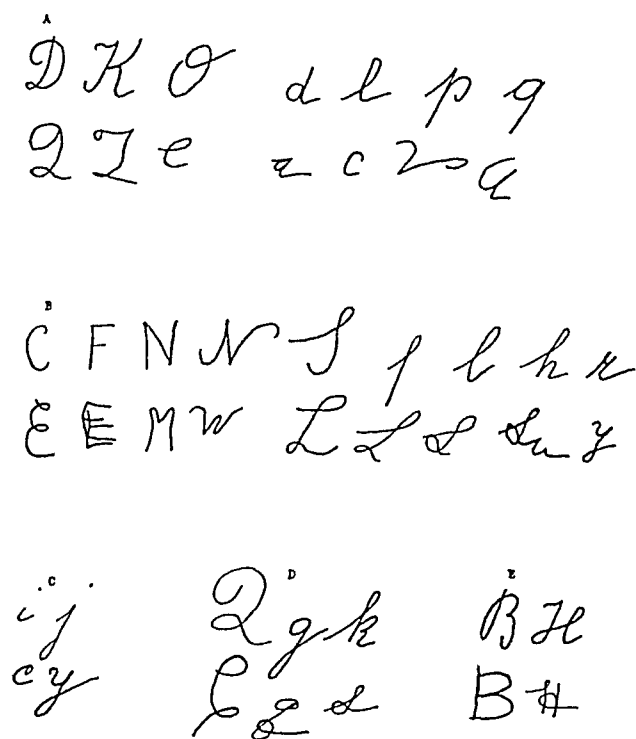 A
D K O d l p q
Q I e z c 2 a
B
C F N N S f l h r
E E M W L L S S u y
C
i j
e y
D
Q g k
E g s
E
B H
B H